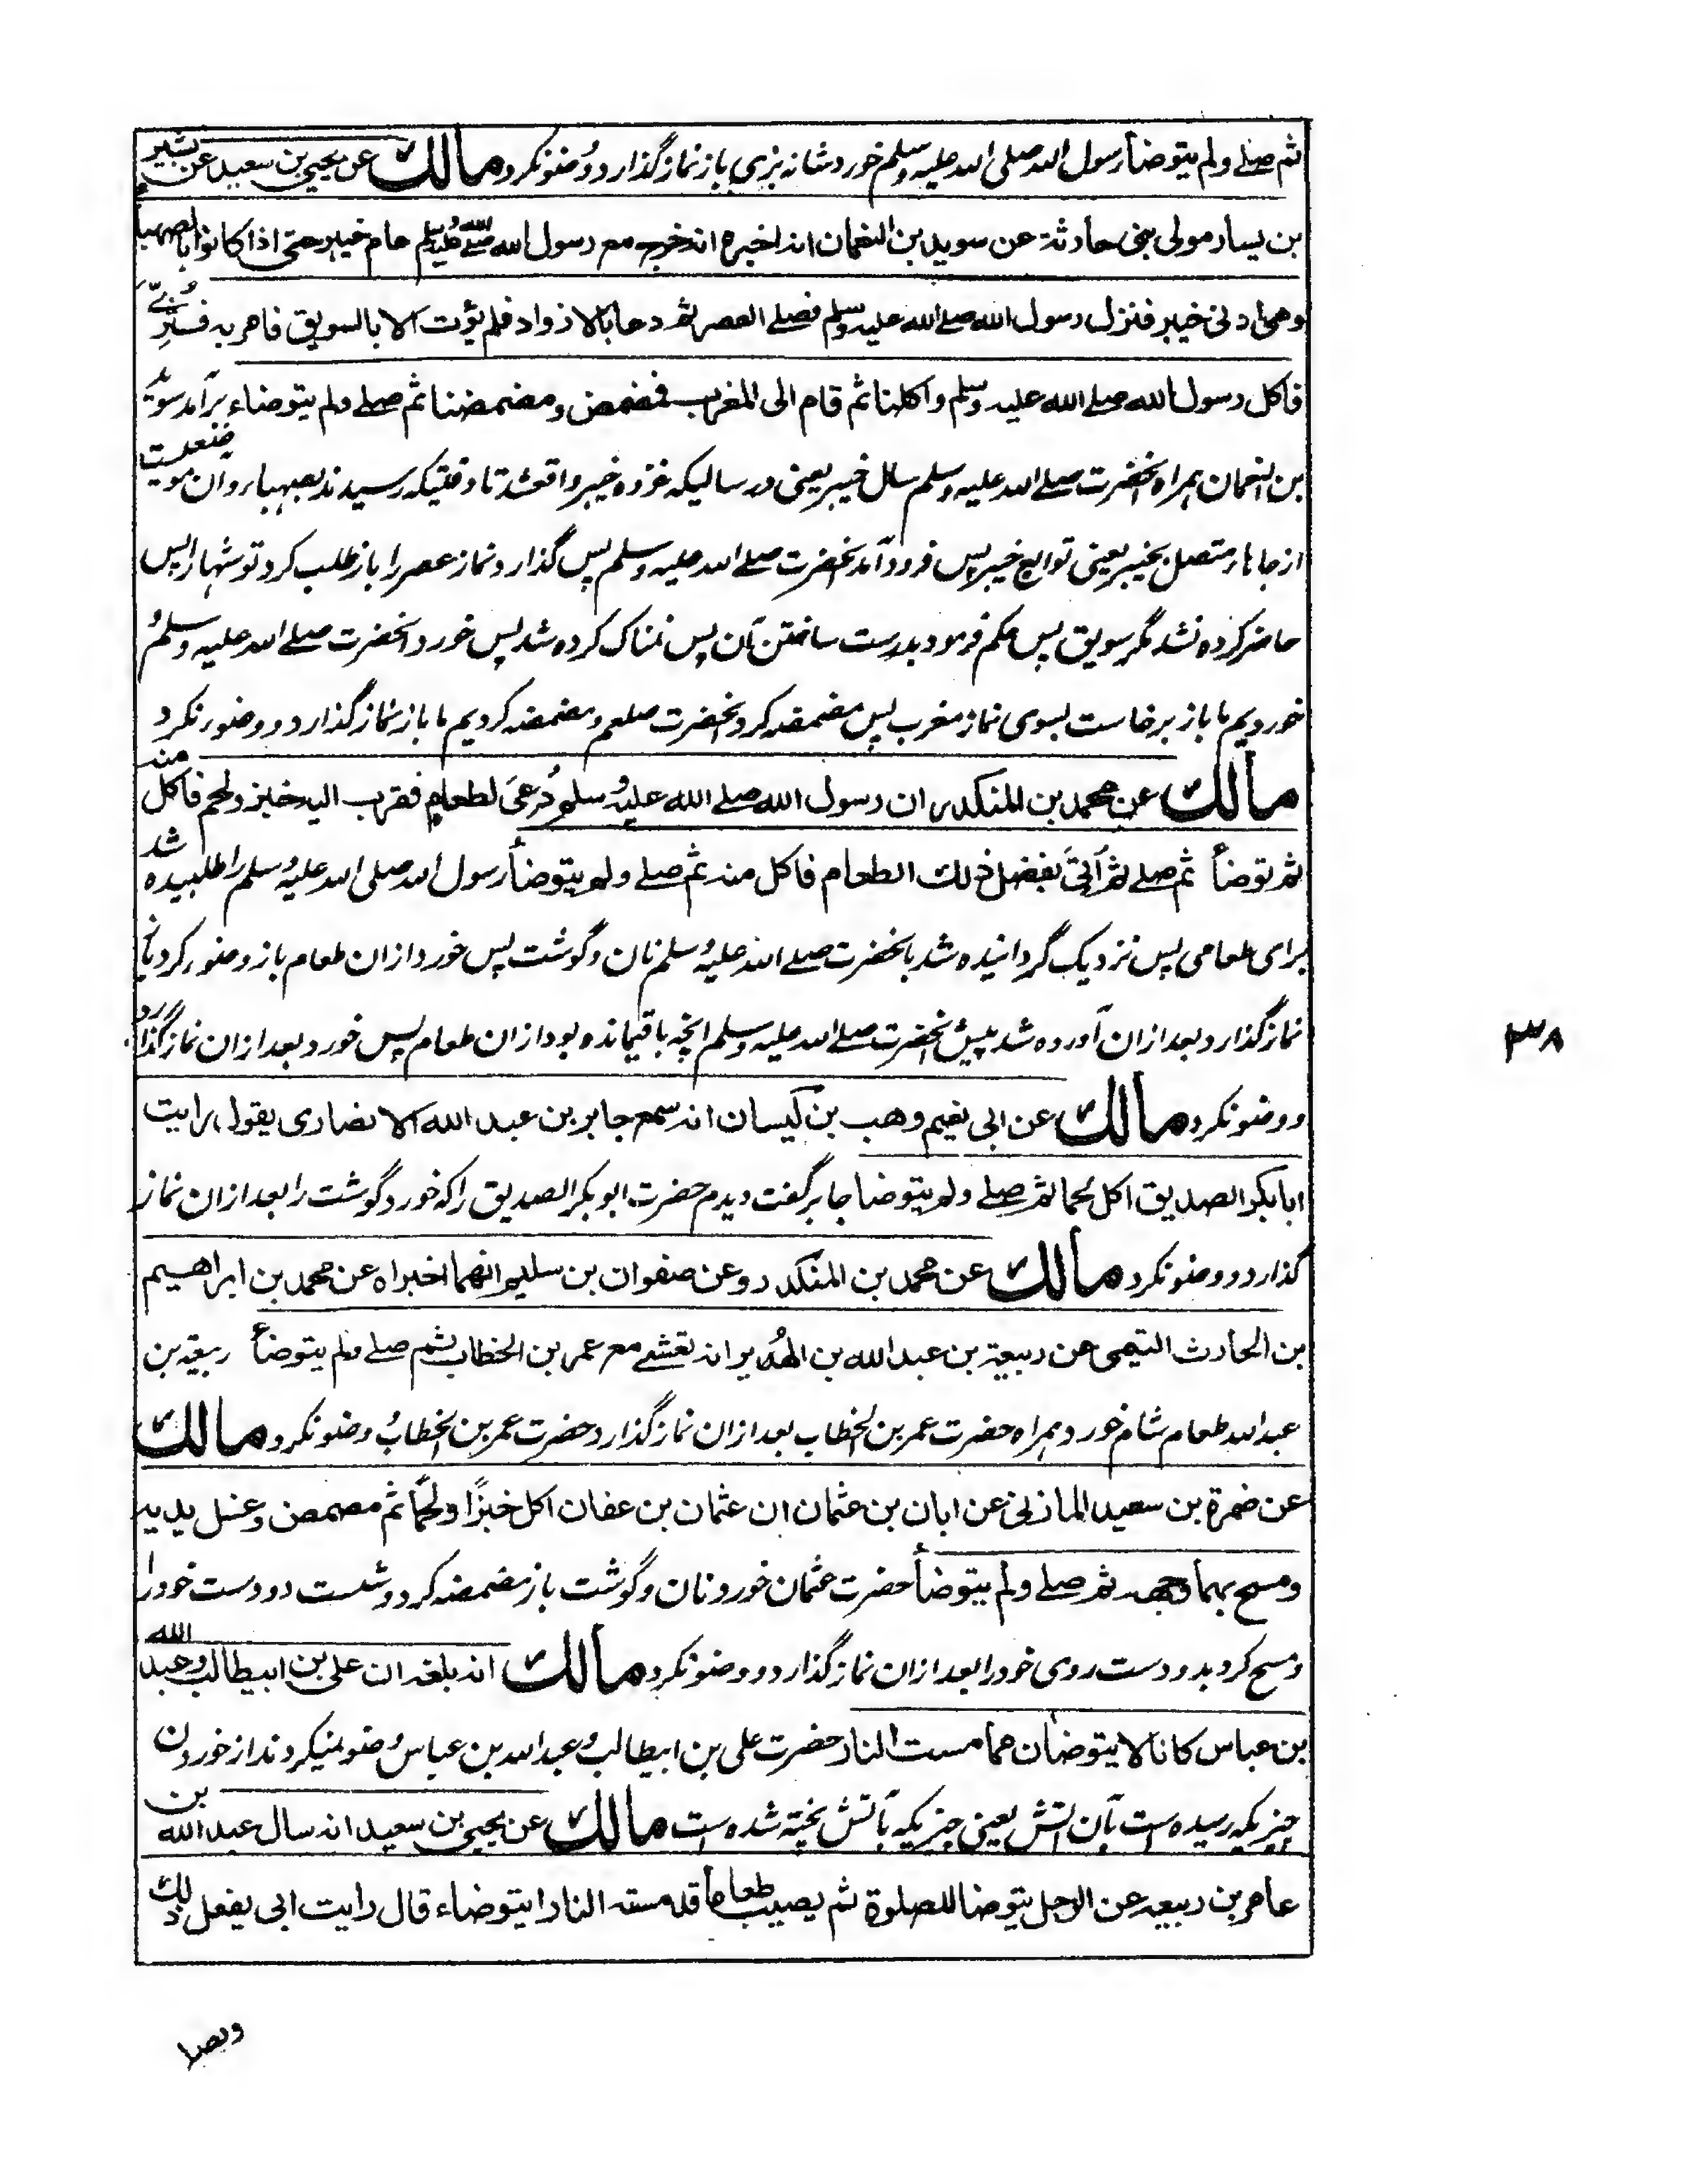 ثم صلے ولم يتوضأ رسول الله صلی الله علیہ وسلم خورد شانہ بزی باز نماز گذارد و وضو نکرد مالك عن يحيى بن سعيد عن بشير
بن يسار مولى بنى حارثة عن سويد بن النعمان انه اخبره انه خرج مع رسول الله صلى الله عليه وسلم عام خيبر حتى اذا كانوا بالصهباء
وهى ادنى خيبر فنزل رسول الله صلے الله عليه وسلم فصلے العصر ثم دعا بالازواد فلم يؤت الا بالسويق فامر به فثرّي
فاكل رسول الله صلے الله عليه وسلم واكلنا ثم قام الى المغرب فمضمض ومضمضنا ثم صلے ولم يتوضاء برآمد سوید
بن النعمان ہمراہ آنحضرت صلے اللہ علیہ وسلم سال خیبر یعنی در سالیکہ غزوہ خیبر واقعشد تا وقتیکہ رسیدند بصہباء و آن موضعیست
از جاہاء متصل بخیبر یعنی توابع خیبر پس فرود آمد آنحضرت صلے اللہ علیہ وسلم پس گذارد نماز عصر را باز طلب کرد توشہا را پس
حاضر کردہ نشد مگر سویق پس حکم فرمود بدرست ساختن آن پس نمناک کردہ شد پس خورد آنحضرت صلے اللہ علیہ وسلم و
خوردیم ما باز برخاست بسوی نماز مغرب پس مضمضہ کرد آنحضرت صلعم و مضمضہ کردیم ما باز نماز گذارد و وضو نکرد
مالك عن محمد بن المنكدر ان رسول الله صلے الله عليه وسلم دُعِيَ لطعام فقرب اليه خبز ولحم فاكل منه
ثم توضأ ثم صلے ثم اُتِيَ بفضل ذلك الطعام فاكل منه ثم صلے ولم يتوضأ رسول اللہ صلی اللہ علیہ وسلم را طلبیدہ شد
برای طعامی پس نزدیک گردانیدہ شد بآنحضرت صلے اللہ علیہ وسلم نان و گوشت پس خورد ازان طعام باز وضو کرد باز
نماز گذارد بعد ازان آوردہ شد پیش آنحضرت صلے اللہ علیہ وسلم آنچہ باقیماندہ بود ازان طعام پس خورد بعد ازان نماز گذارد
و وضو نکرد مالك عن ابى نعيم وهب بن كيسان انه سمع جابر بن عبد الله الانصارى يقول رايت
ابا بكر الصديق اكل لحما ثم صلے ولم يتوضا جابر گفت دیدم حضرت ابو بکر الصدیق را کہ خورد گوشت را بعد ازان نماز
گذارد و وضو نکرد مالك عن محمد بن المنكدر وعن صفوان بن سليم انهما اخبراه عن محمد بن ابراهيم
بن الحارث التيمى عن ربيعة بن عبد الله بن الهُدير انه تعشے مع عمر بن الخطاب ثم صلے ولم يتوضأ ربیعہ بن
عبد اللہ طعام شام خورد ہمراہ حضرت عمر بن الخطاب بعد ازان نماز گذارد حضرت عمر بن الخطاب و وضو نکرد مالك
عن ضمرة بن سعيد المازنى عن ابان بن عثمان ان عثمان بن عفان اكل خبزًا ولحمًا ثم مصمص وغسل يديه
ومسح بهما وجهه ثم صلے ولم يتوضأ حضرت عثمان خورد نان و گوشت باز مضمضہ کرد و شست دو دست خود را
و مسح کرد بدو دست روی خود را بعد ازان نماز گذارد و وضو نکرد مالك انه بلغه ان على بن ابيطالب وعبد الله
بن عباس كانا لا يتوضأن مما مست النار حضرت علی بن ابیطالب و عبد اللہ بن عباس وضو نمیکردند از خوردن
چیزیکہ رسیدہ است بآن آتش یعنی چیزیکہ بآتش پختہ شدہ است مالك عن يحيى بن سعيد انه سال عبد الله بن
عامر بن ربيعه عن الرجل يتوضا للصلوة ثم يصيب طعاما قد مسته النار ايتوضاء قال رايت ابى يفعل ذلك
۳۸